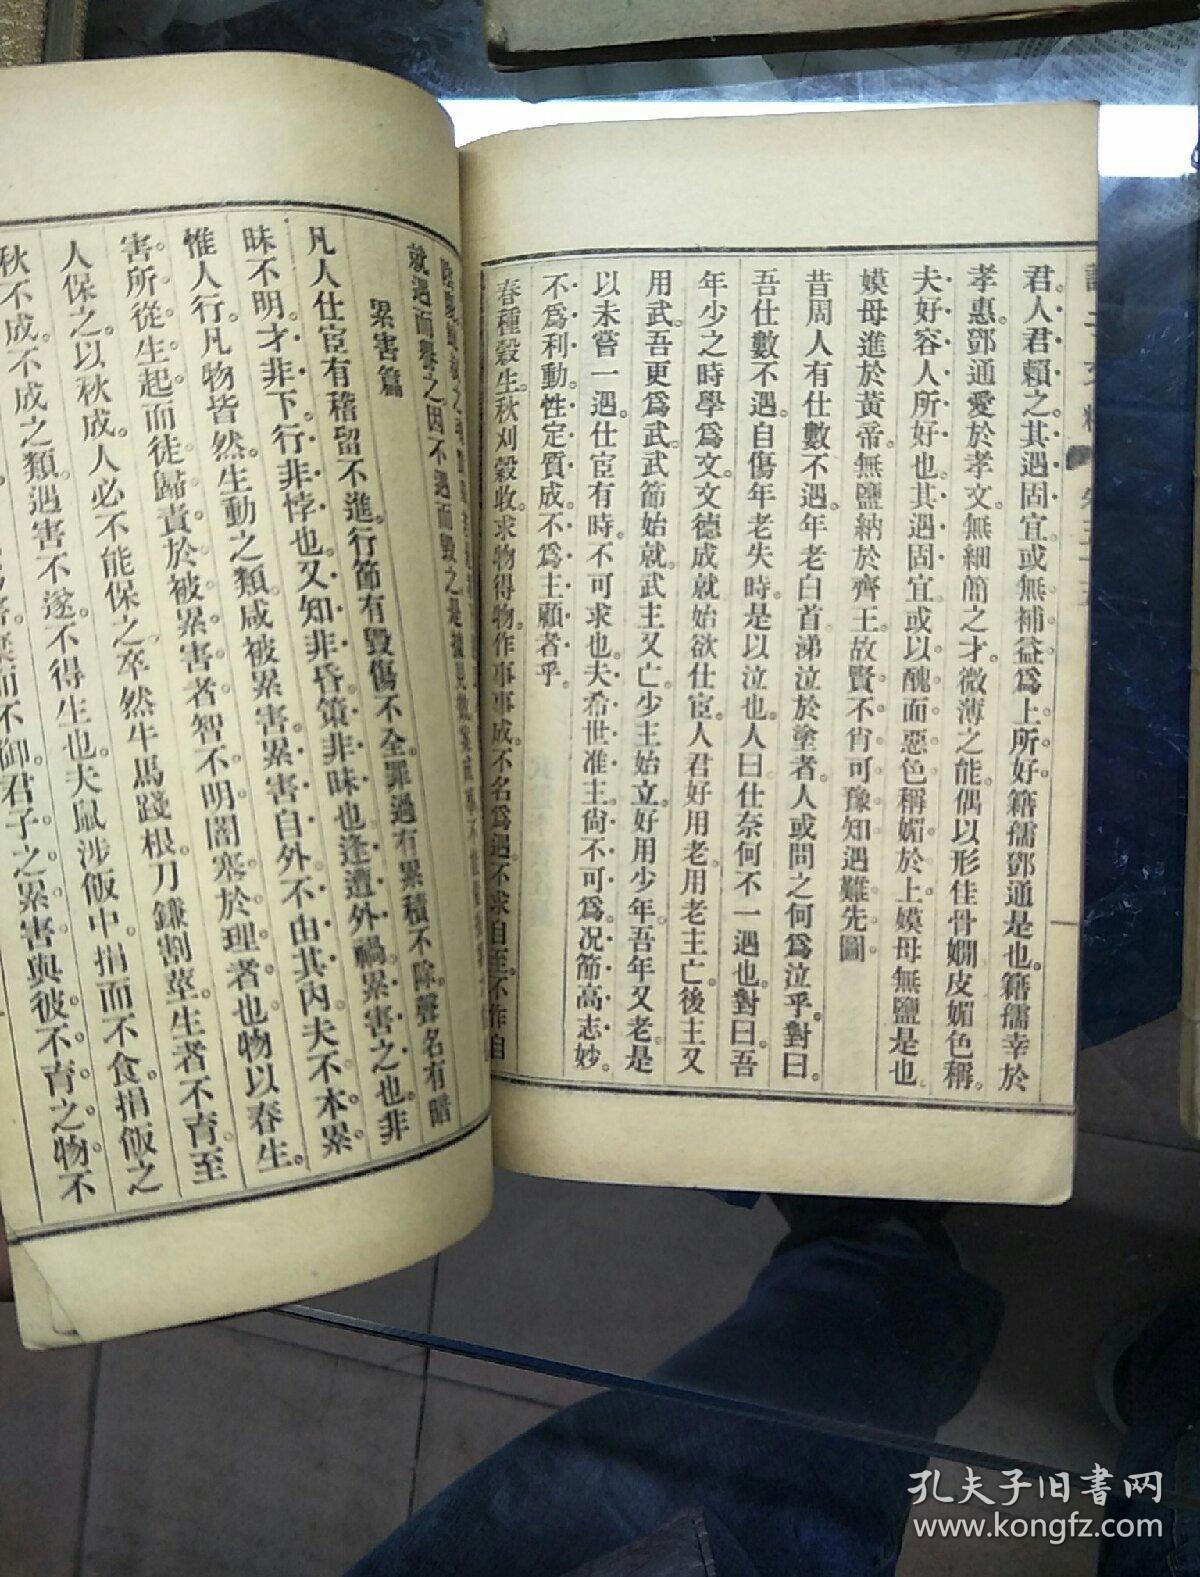 君人君賴之其遇固宜或無補益爲上所好籍孺鄧通是也籍孺幸於
孝惠鄧通愛於孝文無細簡之才微薄之能偶以形佳骨嫺皮媚色稱
夫好容人所好也其遇固宜或以醜面惡色稱媚於上嫫母無鹽是也
嫫母進於黃帝無鹽納於齊王故賢不肖可豫知遇難先圖
昔周人有仕數不遇年老白首涕泣於塗者人或問之何爲泣乎對曰
吾仕數不遇自傷年老失時是以泣也人曰仕奈何不一遇也對曰吾
年少之時學爲文文德成就始欲仕宦人君好用老用老主亡後主又
用武吾更爲武武節始就武主又亡少主始立好用少年吾年又老是
以未嘗一遇仕宦有時不可求也夫希世准主尙不可爲况節高志妙
不爲利動性定質成不爲主顧者乎
春種穀生秋刈穀收求物得物作事事成不名爲遇不求自至不作自
就遇而譽之因不遇而毀之是
累害篇
凡人仕宦有稽留不進行節有毀傷不全罪過有累積不除聲名有暗
昧不明才非下行非悖也又知非昏策非昧也逢遭外禍累害之也非
惟人行凡物皆然生動之類咸被累害累害自外不由其內夫不本累
害所從生起而徒歸責於被累害者智不明闇塞於理者也物以春生
人保之以秋成人必不能保之卒然牛馬踐根刀鎌割莖生者不育至
秋不成不成之類遇害不遂不得生也夫鼠涉飯中捐而不食捐飯之
而不御君子之累害與彼不育之物不
孔夫子旧书网
www.kongfz.com